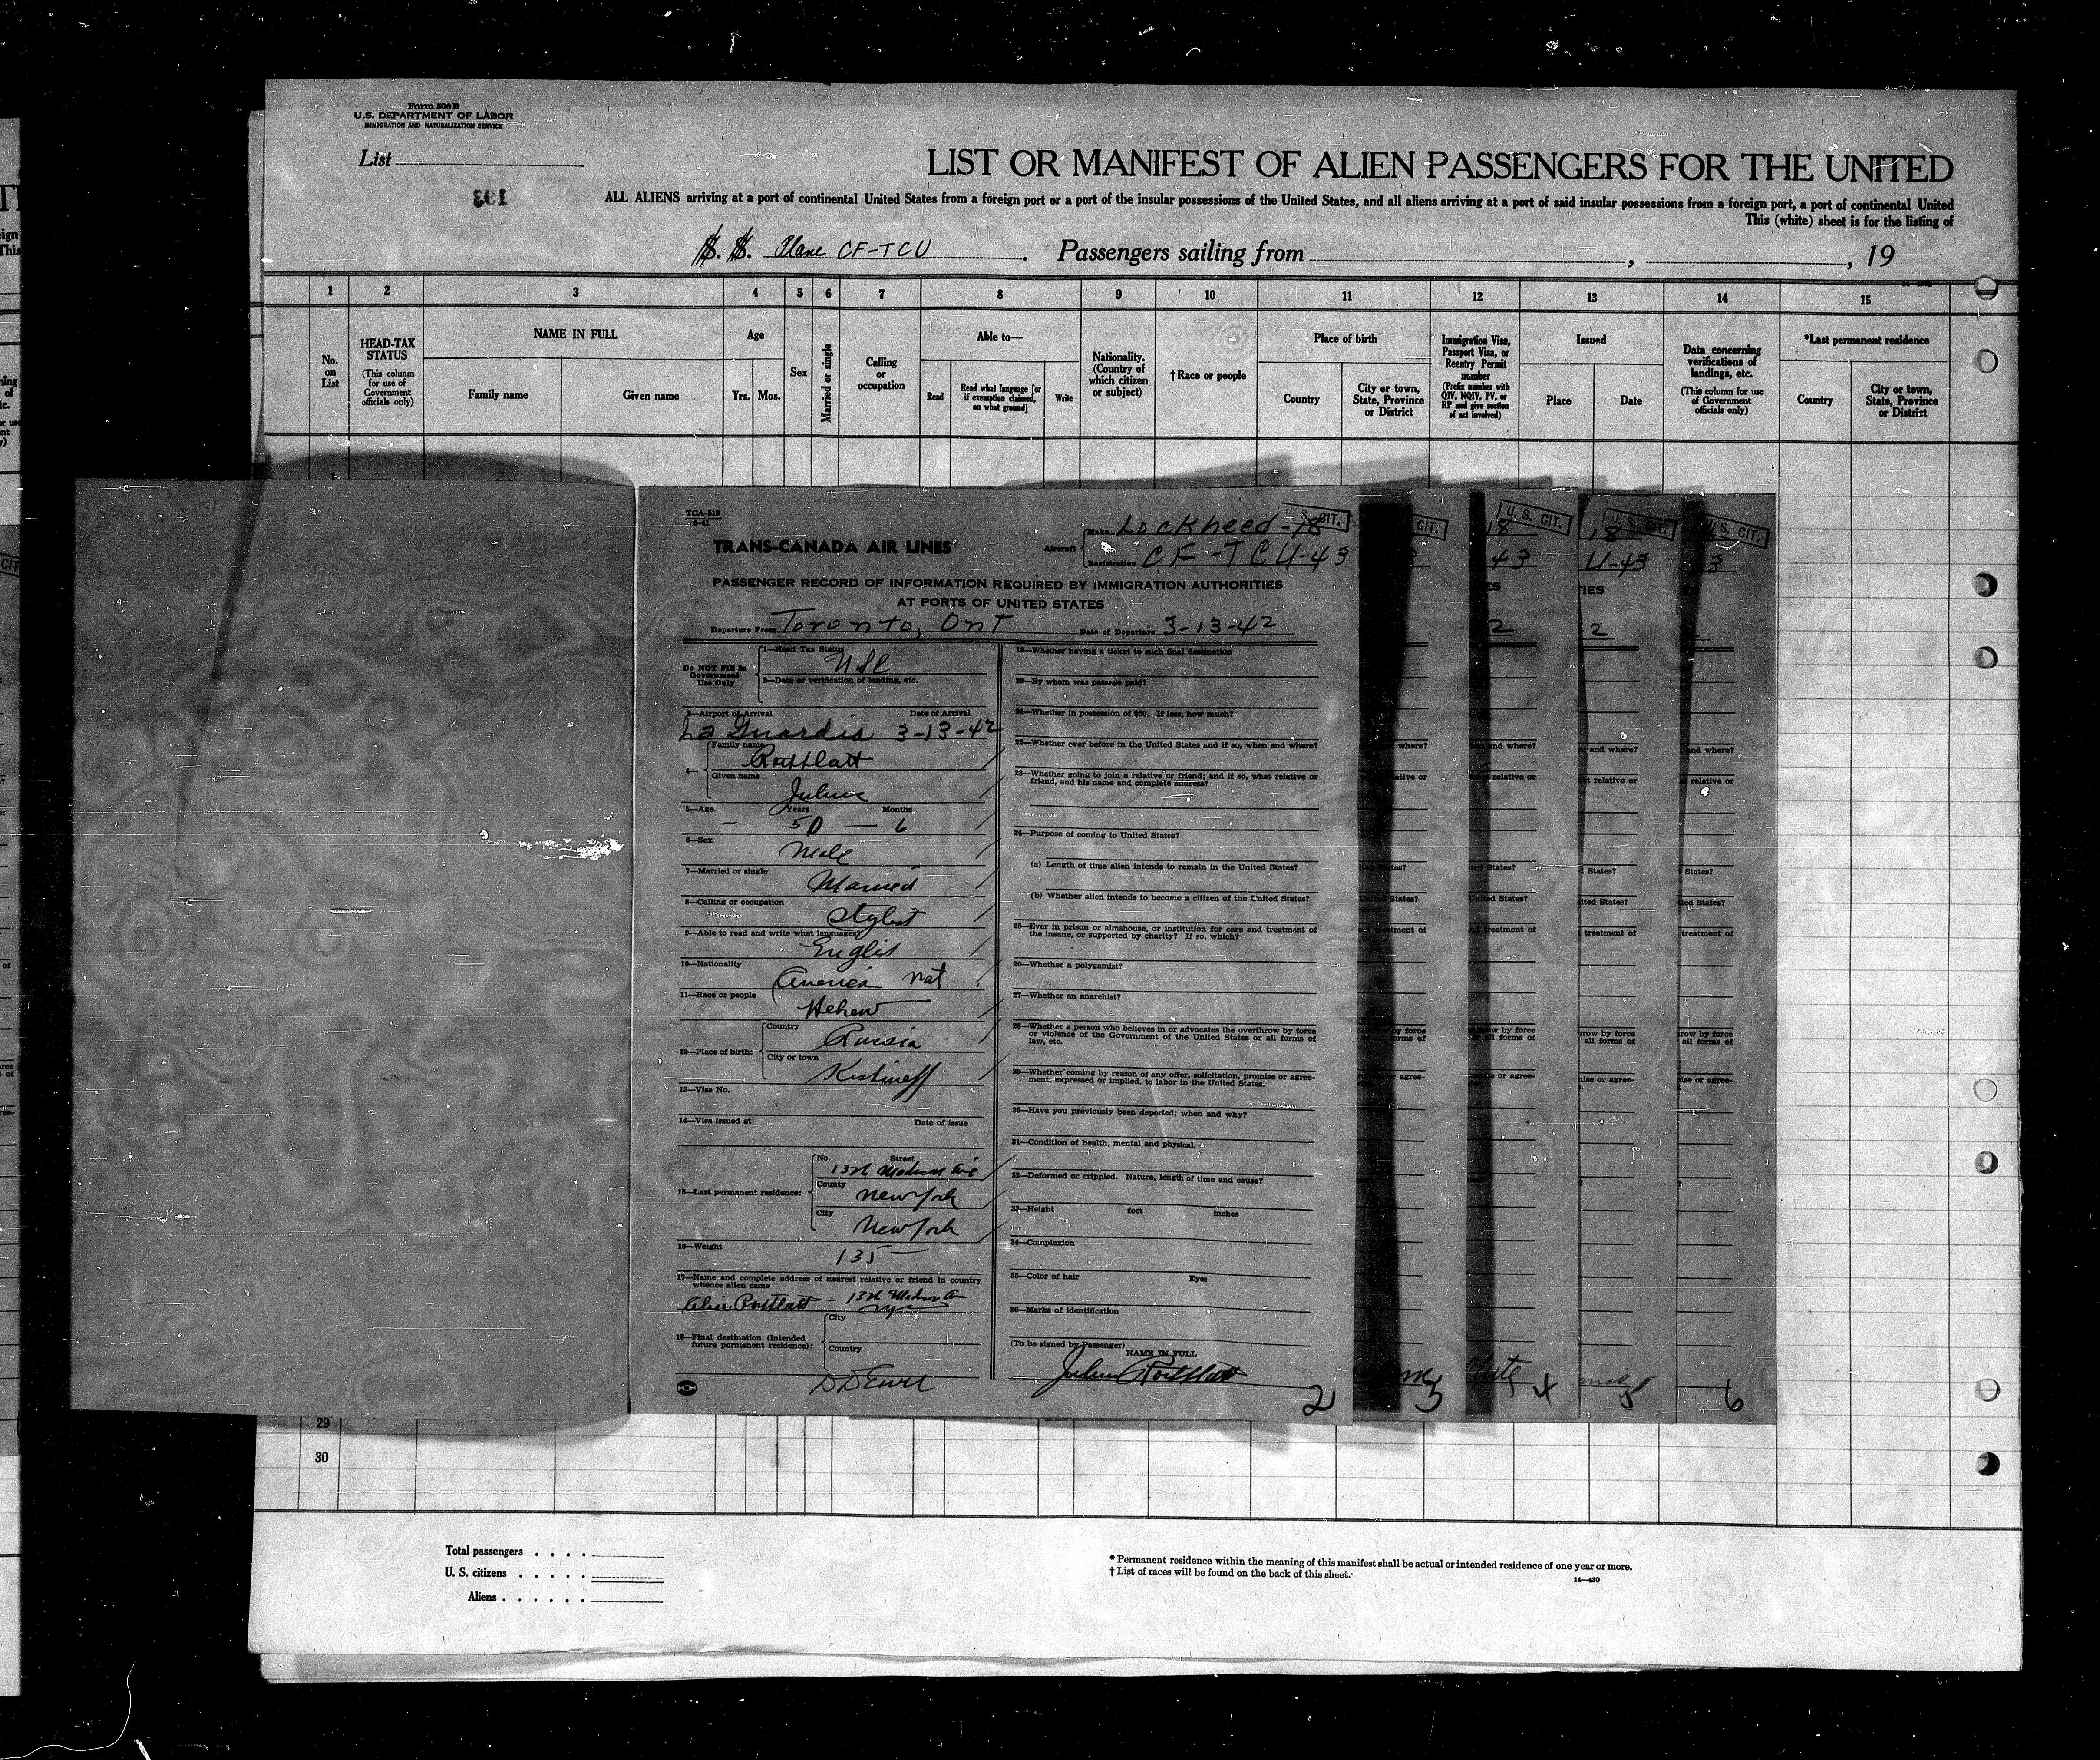 Form 500 B
U.S. DEPARTMENT OF LABOR
IMMIGRATION AND NATURALIZATION SERVICE
List
193
LIST OR MANIFEST OF ALIEN PASSENGERS FOR THE UNITED
ALL ALIENS arriving at a port of continental United States from a foreign port or a port of the insular possessions of the United States, and all aliens arriving at a port of said insular possessions from a foreign port, a port of continental United
This (white) sheet is for the listing of
S. S. Plane CF-TCU . Passengers sailing from , , 19
1 2 3 4 5 6 7 8 9 10 11 12 13 14 15
No. on List
HEAD-TAX STATUS
(This column for use of Government officials only)
NAME IN FULL
Family name Given name
Age
Yrs. Mos.
Sex
Married or single
Calling or occupation
Able to—
Read
Read what language [or if exemption claimed, on what ground]
Write
Nationality. (Country of which citizen or subject)
†Race or people
Place of birth
Country
City or town, State, Province or District
Immigration Visa, Passport Visa, or Reentry Permit number
(Prefix number with QIV, NQIV, PV, or RP and give section of act involved)
Issued
Place Date
Data concerning verifications of landings, etc.
(This column for use of Government officials only)
*Last permanent residence
Country
City or town, State, Province or District
TCA-518
TRANS-CANADA AIR LINES
Aircraft
Make Lockheed-18
Registration CF-TCU-43
U. S. CIT.
PASSENGER RECORD OF INFORMATION REQUIRED BY IMMIGRATION AUTHORITIES
AT PORTS OF UNITED STATES
Departure From Toronto, Ont Date of Departure 3-13-42
Do NOT Fill In Government Use Only
1—Head Tax Status
USC
2—Date or verification of landing, etc.
3—Airport of Arrival Date of Arrival
La Guardia 3-13-42
4— Family name
Given name
Julius
5—Age Years Months
50 — 6
6—Sex
Male
7—Married or single
Married
8—Calling or occupation
Stylist
9—Able to read and write what languages?
English
10—Nationality
America nat
11—Race or people
Hebrew
12—Place of birth:
Country
Russia
City or town
Kishineff
13—Visa No.
14—Visa issued at Date of issue
15—Last permanent residence:
No. Street
Madison Ave
County
New York
City
New York
16—Weight
135
17—Name and complete address of nearest relative or friend in country whence alien came
18—Final destination (Intended future permanent residence):
City
Country
19—Whether having a ticket to such final destination
20—By whom was passage paid?
21—Whether in possession of $50. If less, how much?
22—Whether ever before in the United States and if so, when and where?
23—Whether going to join a relative or friend; and if so, what relative or friend, and his name and complete address?
24—Purpose of coming to United States?
(a) Length of time alien intends to remain in the United States?
(b) Whether alien intends to become a citizen of the United States?
25—Ever in prison or almshouse, or institution for care and treatment of the insane, or supported by charity? If so, which?
26—Whether a polygamist?
27—Whether an anarchist?
28—Whether a person who believes in or advocates the overthrow by force or violence of the Government of the United States or all forms of law, etc.
29—Whether coming by reason of any offer, solicitation, promise or agreement, expressed or implied, to labor in the United States.
30—Have you previously been deported; when and why?
31—Condition of health, mental and physical.
32—Deformed or crippled. Nature, length of time and cause?
33—Height feet inches
34—Complexion
35—Color of hair Eyes
36—Marks of identification
(To be signed by Passenger)
NAME IN FULL
2
U. S. CIT.
U. S. CIT.
U. S. CIT.
4
6
29
30
Total passengers . . . .
U. S. citizens . . . . .
Aliens . . . . . .
* Permanent residence within the meaning of this manifest shall be actual or intended residence of one year or more.
† List of races will be found on the back of this sheet.
14—430